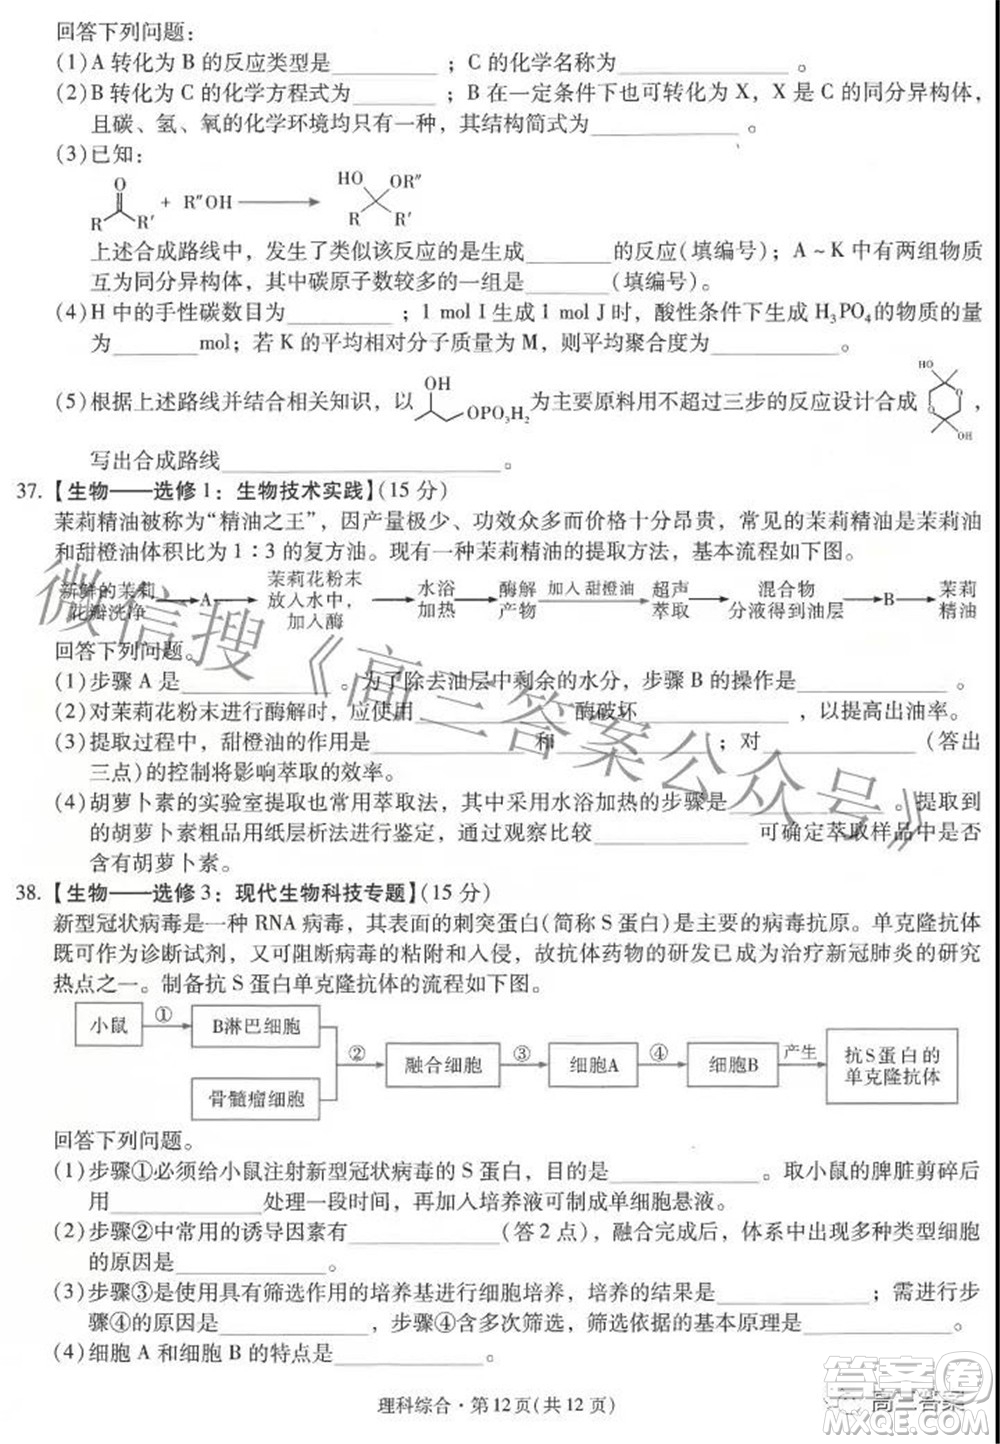 回答下列问题:
(1)A 转化为 B 的反应类型是________;C 的化学名称为________。
(2)B 转化为 C 的化学方程式为________;B 在一定条件下也可转化为 X，X 是 C 的同分异构体，
且碳、氢、氧的化学环境均只有一种，其结构简式为________。
(3)已知:
O R R′ + R″OH HO OR″ R R′
上述合成路线中，发生了类似该反应的是生成________的反应(填编号);A～K 中有两组物质
互为同分异构体，其中碳原子数较多的一组是________(填编号)。
(4)H 中的手性碳数目为________;1 mol I 生成 1 mol J 时，酸性条件下生成 H₃PO₄ 的物质的量
为________mol;若 K 的平均相对分子质量为 M，则平均聚合度为________。
(5)根据上述路线并结合相关知识，以 OH OPO₃H₂ 为主要原料用不超过三步的反应设计合成 HO O O OH ，
写出合成路线________。
37.【生物——选修 1：生物技术实践】(15 分)
茉莉精油被称为“精油之王”，因产量极少、功效众多而价格十分昂贵，常见的茉莉精油是茉莉油
和甜橙油体积比为 1∶3 的复方油。现有一种茉莉精油的提取方法，基本流程如下图。
新鲜的茉莉花瓣洗净 A 茉莉花粉末放入水中，加入酶 水浴加热 酶解产物 加入甜橙油 超声萃取 混合物分液得到油层 B 茉莉精油
回答下列问题。
(1)步骤 A 是________。为了除去油层中剩余的水分，步骤 B 的操作是________。
(2)对茉莉花粉末进行酶解时，应使用________酶破坏________，以提高出油率。
(3)提取过程中，甜橙油的作用是________和________;对________(答出
三点)的控制将影响萃取的效率。
(4)胡萝卜素的实验室提取也常用萃取法，其中采用水浴加热的步骤是________。提取到
的胡萝卜素粗品用纸层析法进行鉴定，通过观察比较________可确定萃取样品中是否
含有胡萝卜素。
38.【生物——选修 3：现代生物科技专题】(15 分)
新型冠状病毒是一种 RNA 病毒，其表面的刺突蛋白(简称 S 蛋白)是主要的病毒抗原。单克隆抗体
既可作为诊断试剂，又可阻断病毒的粘附和入侵，故抗体药物的研发已成为治疗新冠肺炎的研究
热点之一。制备抗 S 蛋白单克隆抗体的流程如下图。
小鼠 ① B淋巴细胞 骨髓瘤细胞 ② 融合细胞 ③ 细胞A ④ 细胞B 产生 抗S蛋白的单克隆抗体
回答下列问题。
(1)步骤①必须给小鼠注射新型冠状病毒的 S 蛋白，目的是________。取小鼠的脾脏剪碎后
用________处理一段时间，再加入培养液可制成单细胞悬液。
(2)步骤②中常用的诱导因素有________(答 2 点)，融合完成后，体系中出现多种类型细胞
的原因是________。
(3)步骤③是使用具有筛选作用的培养基进行细胞培养，培养的结果是________;最后经
步骤④的克隆化________，步骤④含多次筛选，筛选依据的基本原理是________。
(4)细胞 A 和细胞 B 的特点是________。
理科综合·第12页(共12页)
微信搜《高三答案公众号》
高三答案
答案圈
MXQE.COM